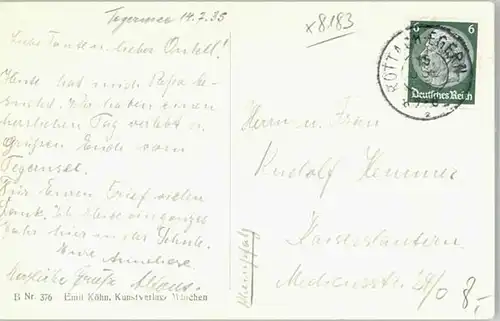 Tegernsee 14.7.35
Liebe Tante u. lieber Onkel!
Heute hat mich Papa be-
sucht. Wir haben einen
herrlichen Tag verlebt u.
grüßen Euch vom
Tegernsee.
Für Euren Brief vielen
Dank. Ich bleibe ein ganzes
Jahr hier in der Schule.
Eure Anneliese
Herzliche Grüße
B Nr. 376 Emil Köhn, Kunstverlag München
x8183
6 6
Deutsches Reich
ROTTACH-EGERN
Herrn u. Frau
Rudolf Hemmer
Kaiserslautern
Rheinpfalz
24/0 8,-